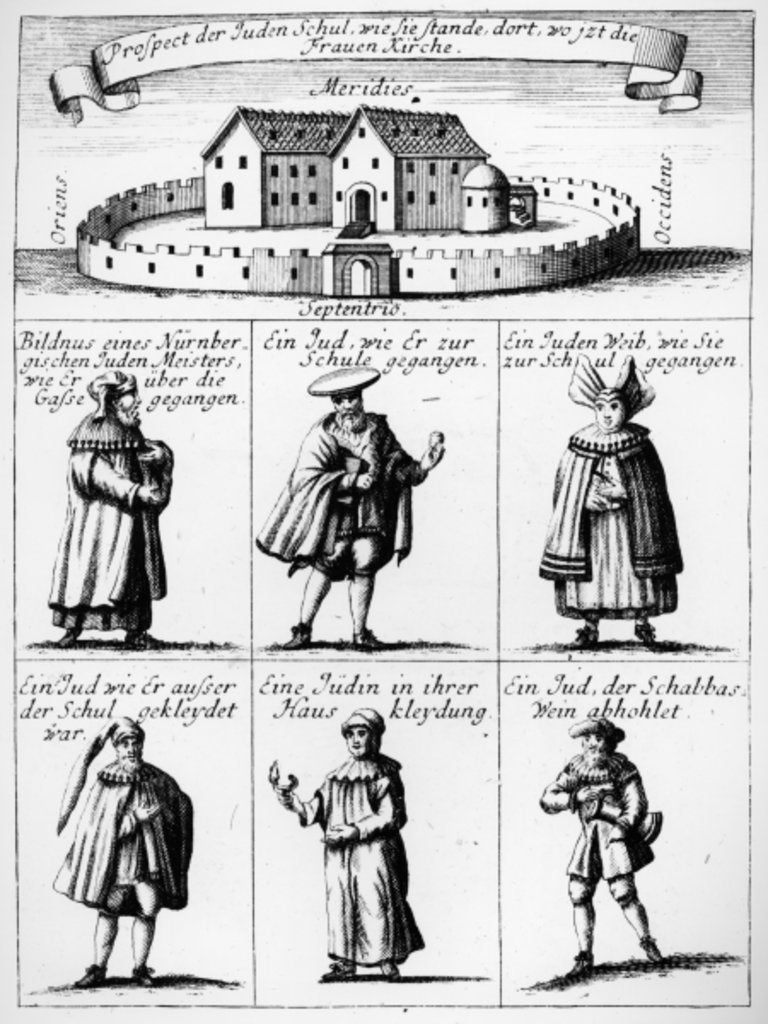 Prospect der Juden Schul, wie sie stande, dort, wo jzt die
Frauen Kirche.
Meridies.
Oriens.
Occidens.
Septentrio.
Bildnus eines Nürnber-
gischen Juden Meisters,
wie Er über die
Gasse gegangen.
Ein Jud, wie Er zur
Schule gegangen.
Ein Juden Weib, wie Sie
zur Schul gegangen.
Ein Jud wie Er ausser
der Schul gekleydet
war.
Eine Jüdin in ihrer
Haus kleydung.
Ein Jud, der Schabbas.
Wein abhohlet.